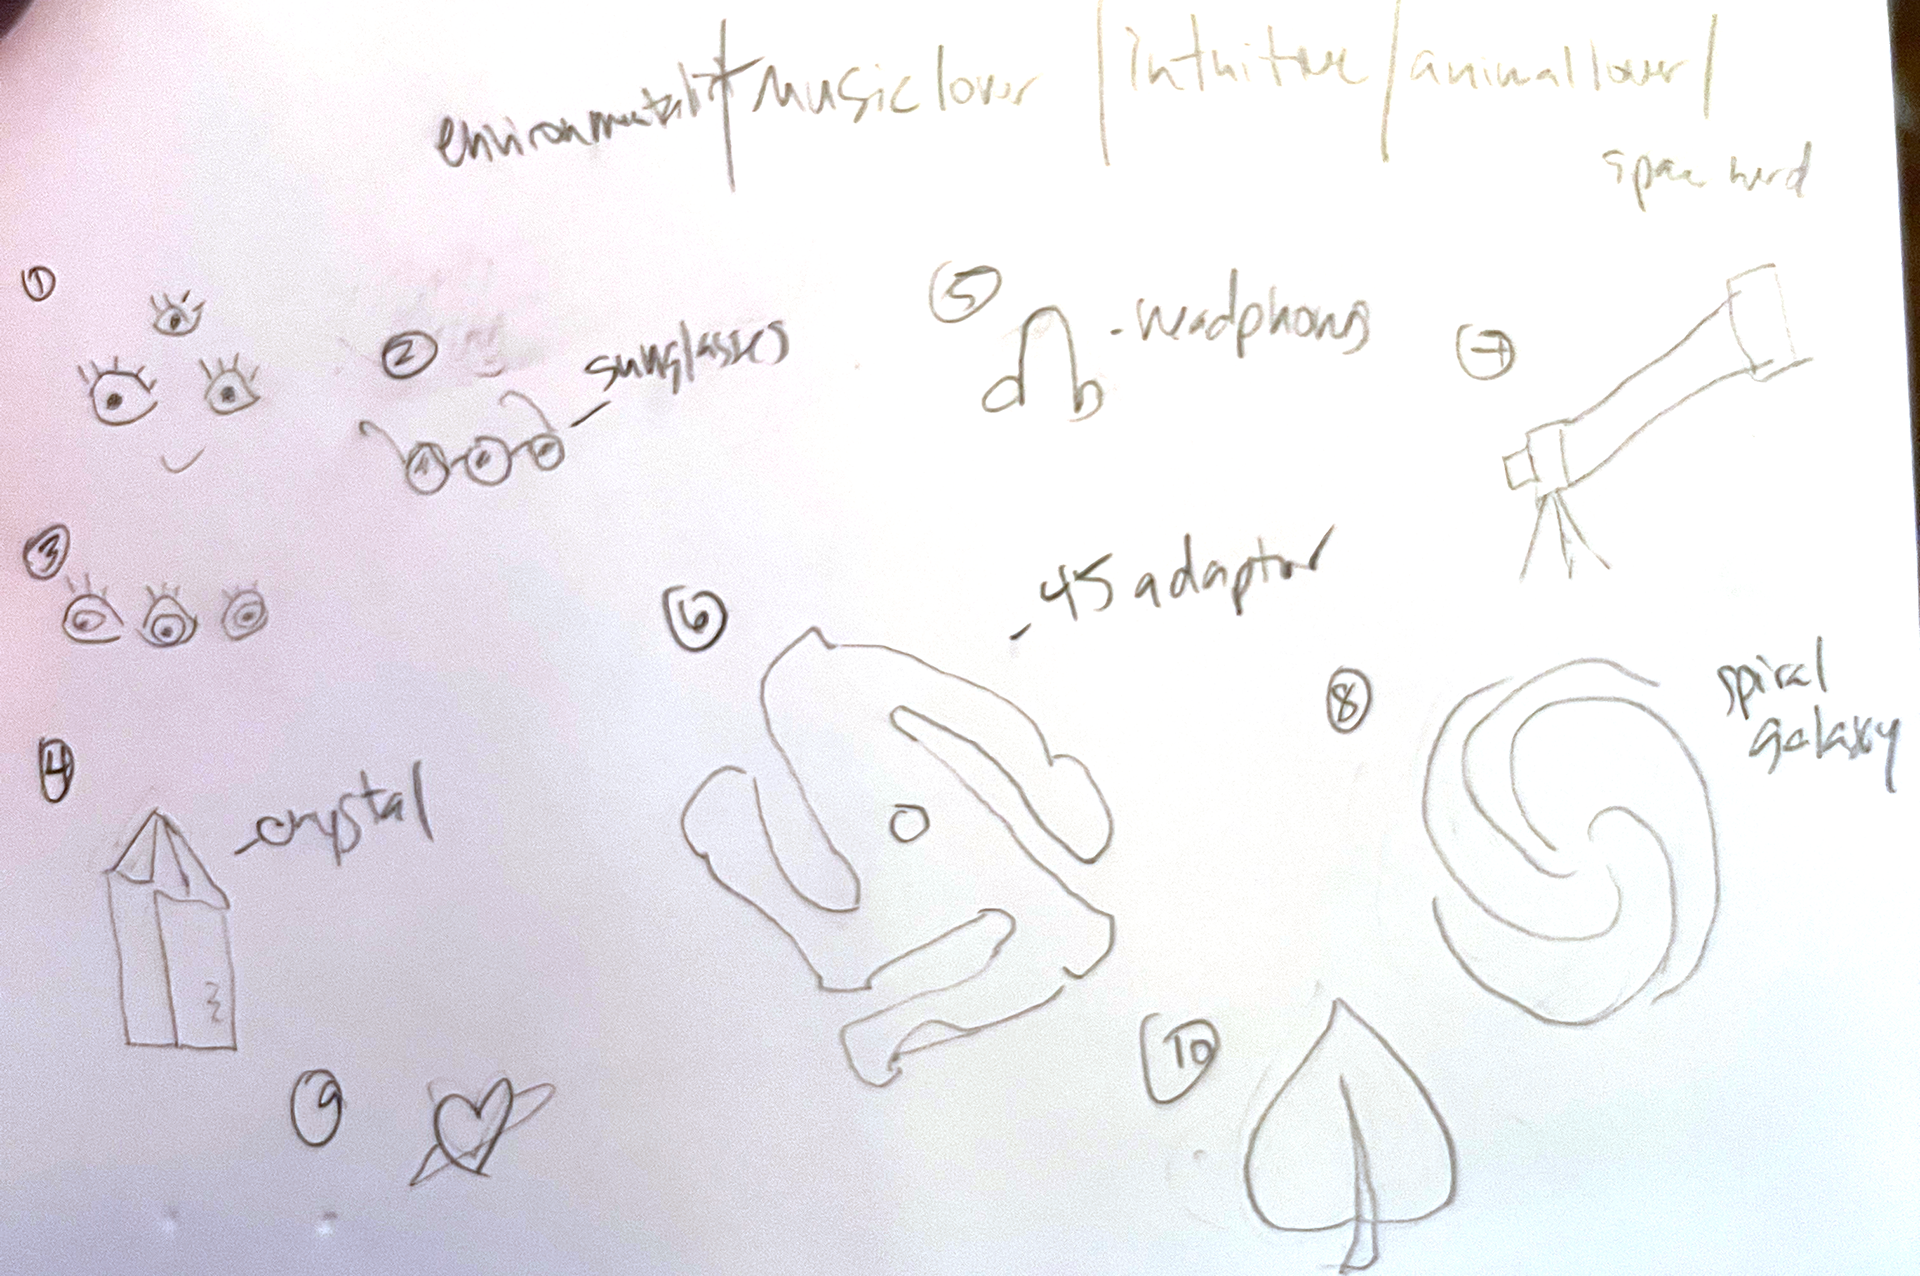 environmentalist/music lover/intuitive/animal lover/
space nerd
①
② - sunglasses
③
④ - crystal
⑤ - headphones
⑥ - 45 adaptor
⑦
⑧ spiral
galaxy
⑨
⑩